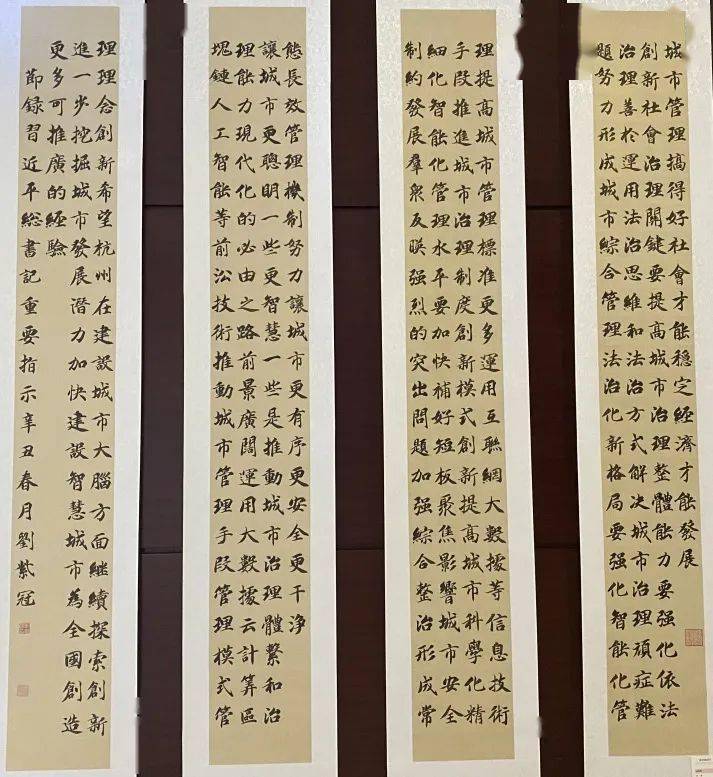 城市管理搞得好社會才能穩定經濟才能發展
創新社會治理關鍵要提高城市治理整體能力要强化依法
治理善於運用法治思維和法治方式解决城市治理頑症難
題努力形成城市綜合管理法治化新格局要强化智能化管
理提高城市管理標准更多運用互聯網大數據等信息技術
手段推進城市治理制度創新模式創新提高城市科學化精
細化智能化管理水平要加快補好短板聚焦影響城市安全
制約發展羣衆反映强烈的突出問題加强綜合整治形成常
態長效管理機制努力讓城市更有序更安全更干净
讓城市更聰明一些更智慧一些是推動城市治理體繫和治
理能力現代化的必由之路前景廣闊運用大數據云計算區
塊鏈人工智能等前沿技術推動城市管理手段管理模式管
理理念創新希望杭州在建設城市大腦方面繼續探索創新
進一步挖掘城市發展潛力加快建設智慧城市為全國創造
更多可推廣的經驗
節録習近平總書記重要指示辛丑春月劉紫冠